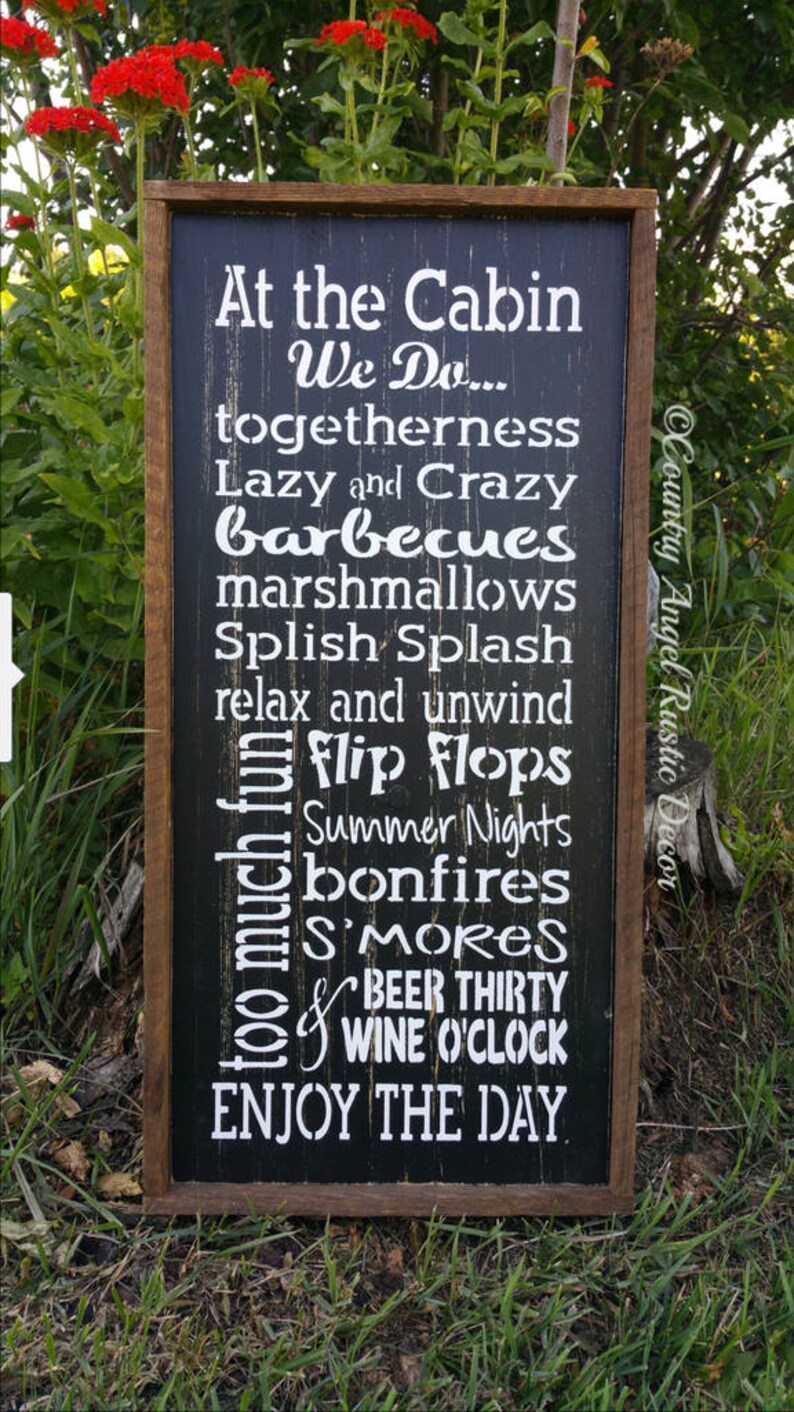 At the Cabin
We Do...
togetherness
Lazy and Crazy
barbecues
marshmallows
Splish Splash
relax and unwind
too much fun
flip flops
Summer Nights
bonfires
S'MOReS
& BEER THIRTY
WINE O'CLOCK
ENJOY THE DAY
©Country Angel Rustic Decor